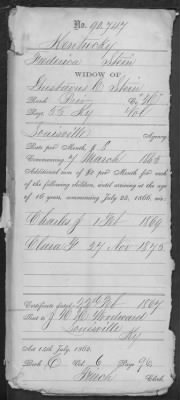 No. 90,747
Kentucky
Frederica Stein
WIDOW OF
Gustavus C. Stein
Rank Priv Co. "H"
Reg. 55 Ky Vol
Louisville Agency.
Rate per Month, $ 8
Commencing 7 March 1865
Additional sum of $2 per Month for each
of the following children, until arriving at the age
of 16 years, commencing July 25, 1866, viz:
Charles J 1 Oct 1869
Clara F 27 Nov 1875
Certificate dated 23d Feb 1867
Sent to J W H Woodward
Louisville
Ky
Act 14th July, 1862.
Book C Vol. 6 Page 96
French Clerk.